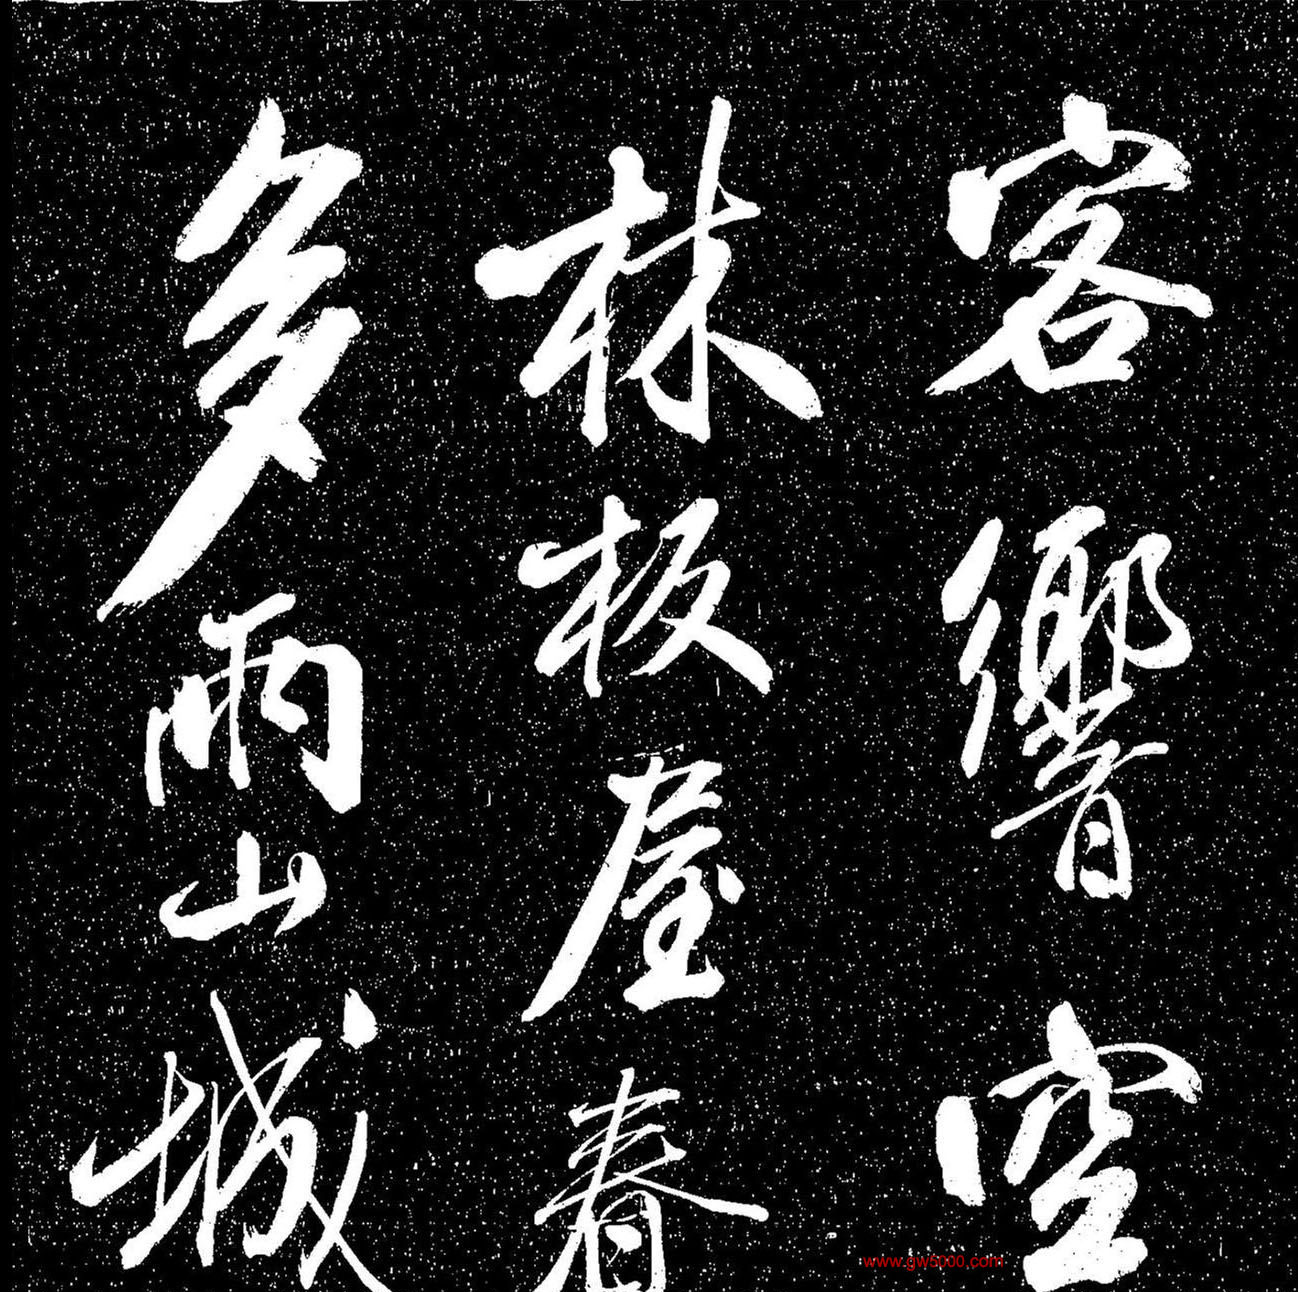 客響空
林板屋春
多雨山城
www.gw5000.com